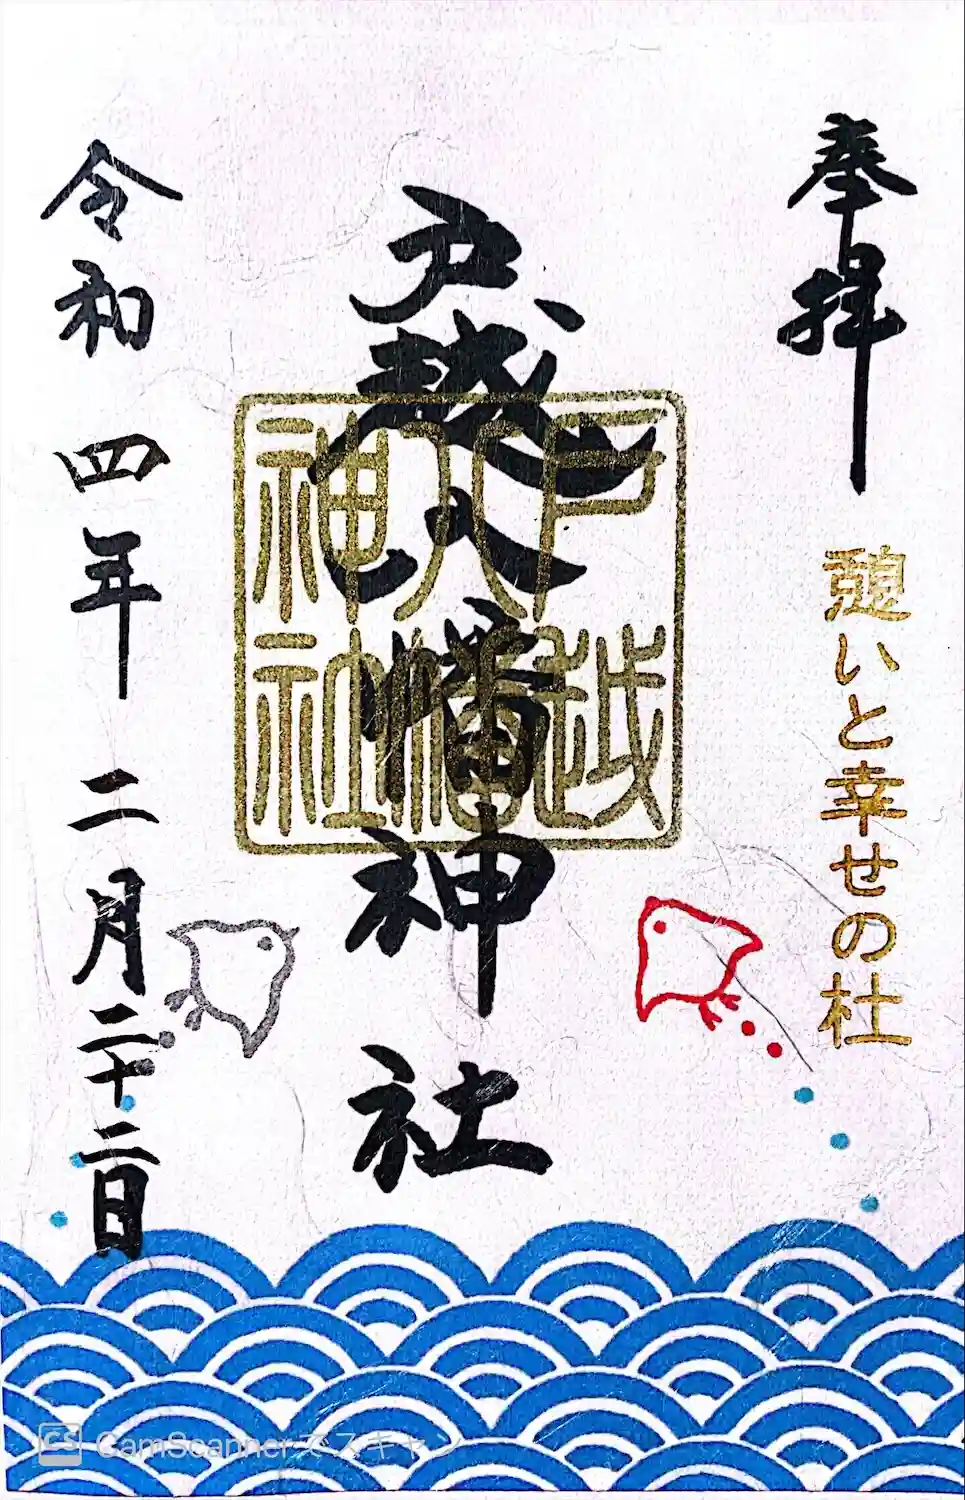 奉拝
憩いと幸せの杜
戸越八幡神社
戸越
八幡
神社
令和四年二月二十二日
CS CamScannerでスキャン